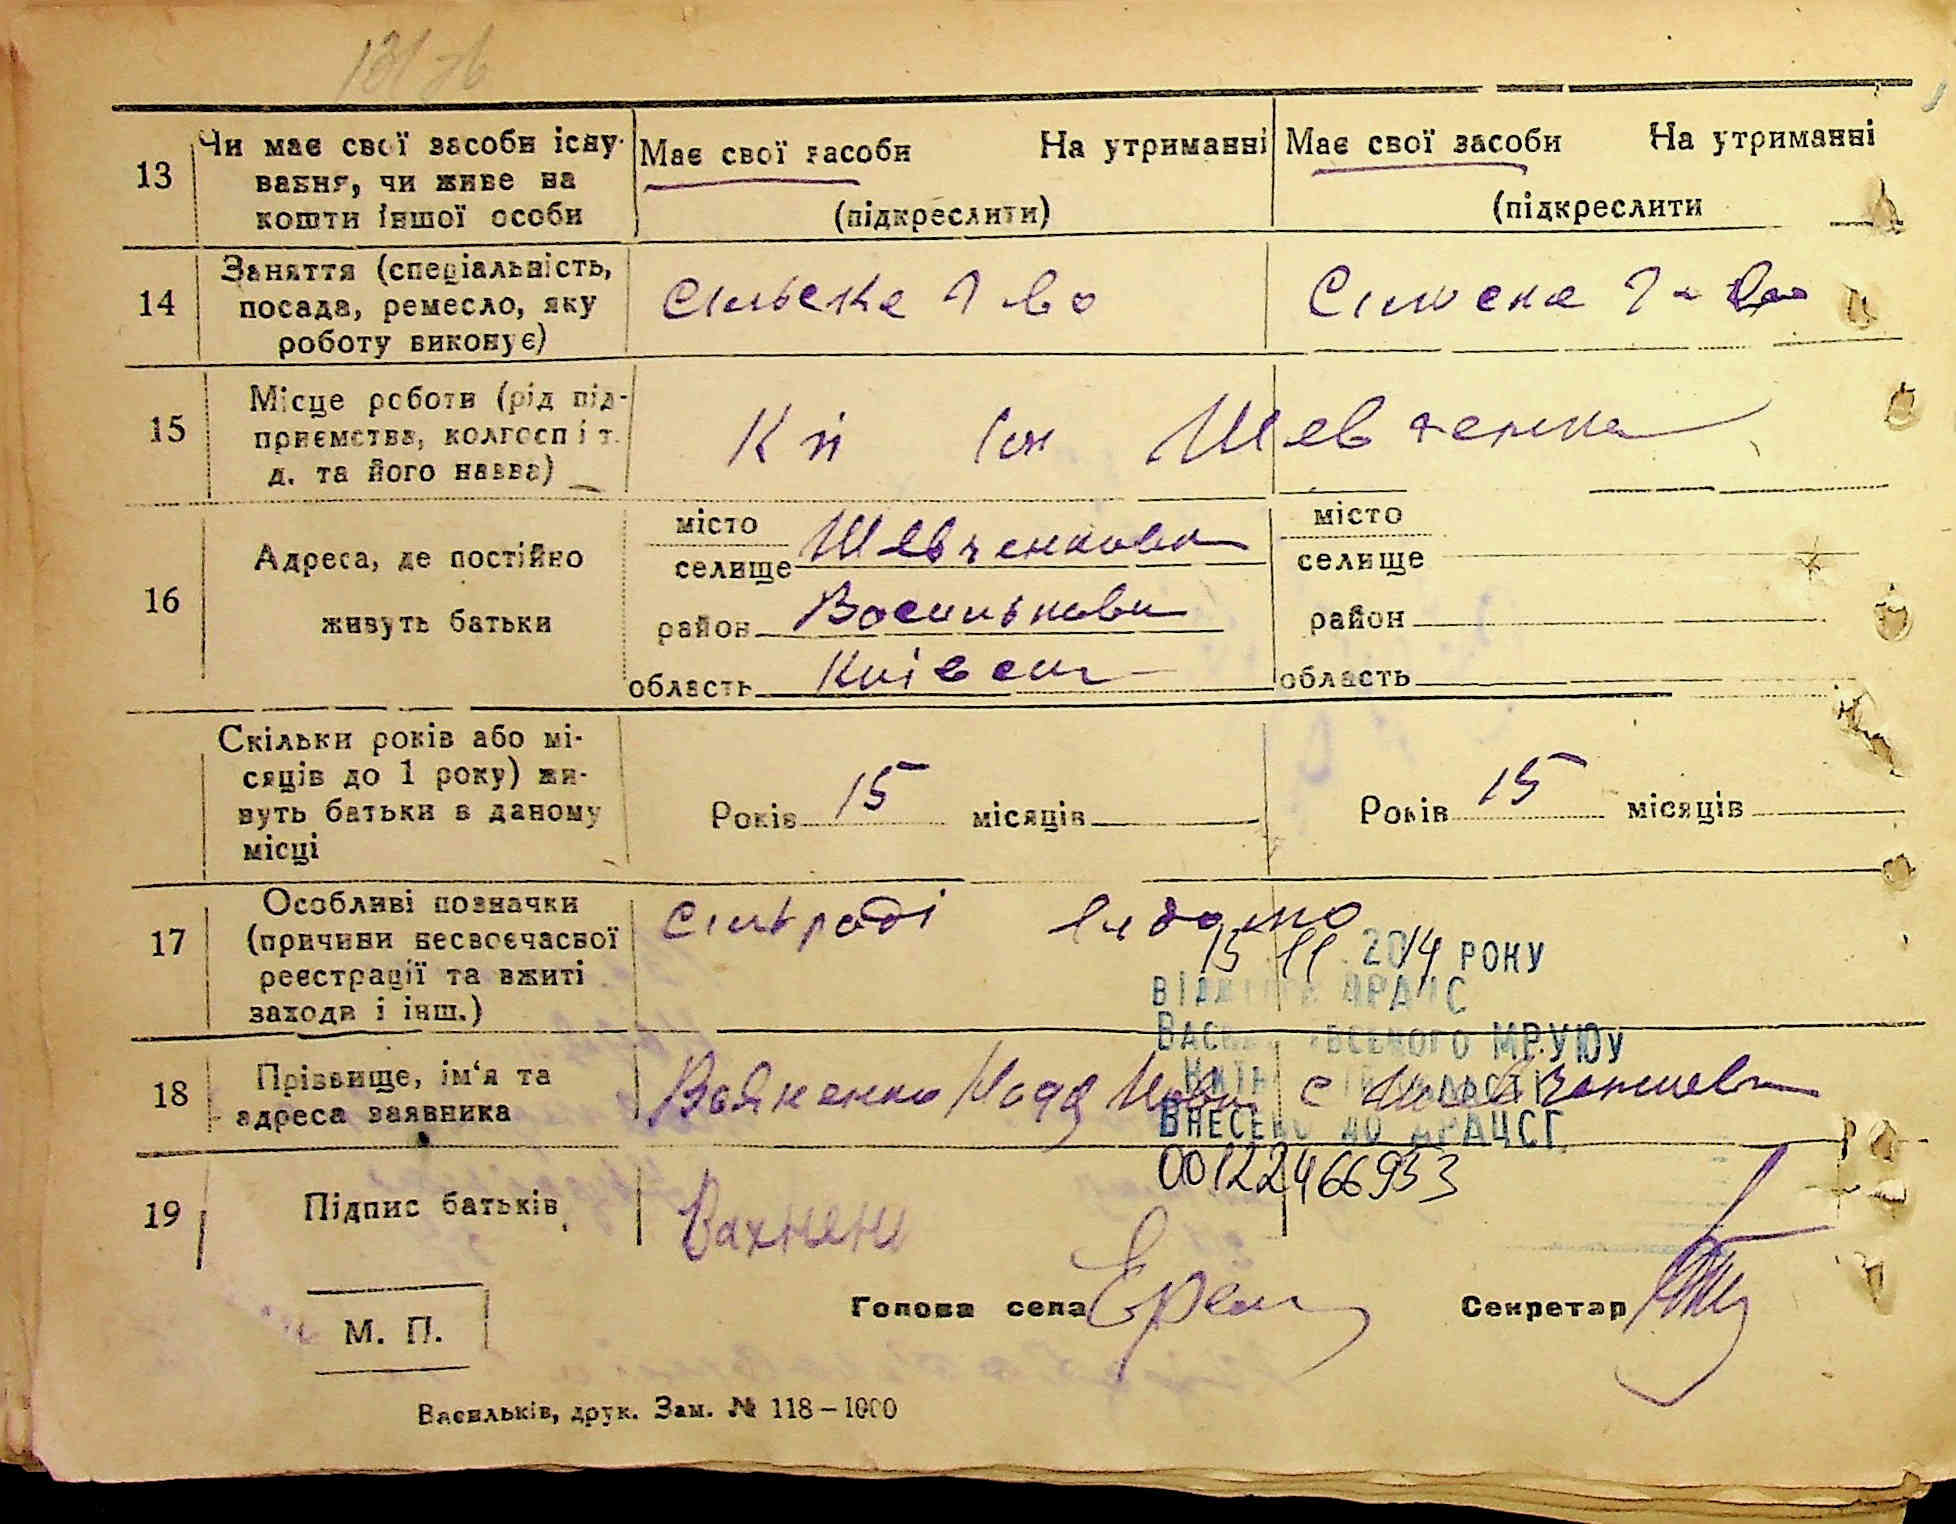 131 зв
13 Чи має свої засоби існу-
вання, чи живе на
кошти іншої особи
Має свої засоби На утриманні
(підкреслити)
Має свої засоби На утриманні
(підкреслити
14 Заняття (спеціальність,
посада, ремесло, яку
роботу виконує)
Сільське г во
Сільське г-во
15 Місце роботи (рід під-
приємства, колгосп і т.
д. та його назва)
К п ім Шевченка
16 Адреса, де постійно
живуть батьки
місто
селище Шевченковка
район Васильковск
область Київськ
місто
селище
район
область
Скільки років або мі-
сяців до 1 року) жи-
вуть батьки в даному
місці
Років 15 місяців
Років 15 місяців
17 Особливі позначки
(причини несвоєчасної
реєстрації та вжиті
заходи і інш.)
Сільраді відомо
15 11 2014 РОКУ
ВІДДІЛОМ ДРАЦС
ВАСИЛЬКІВСЬКОГО МРУЮ У
КИЇВСЬКІЙ ОБЛАСТІ
ВНЕСЕНО ДО ДРАЦСГ
00122466953
18 Прізвище, ім'я та
адреса заявника
19 Підпис батьків
Вахнен
М. П.
Голова села
Секретар
Васильків, друк. Зам. № 118–1000